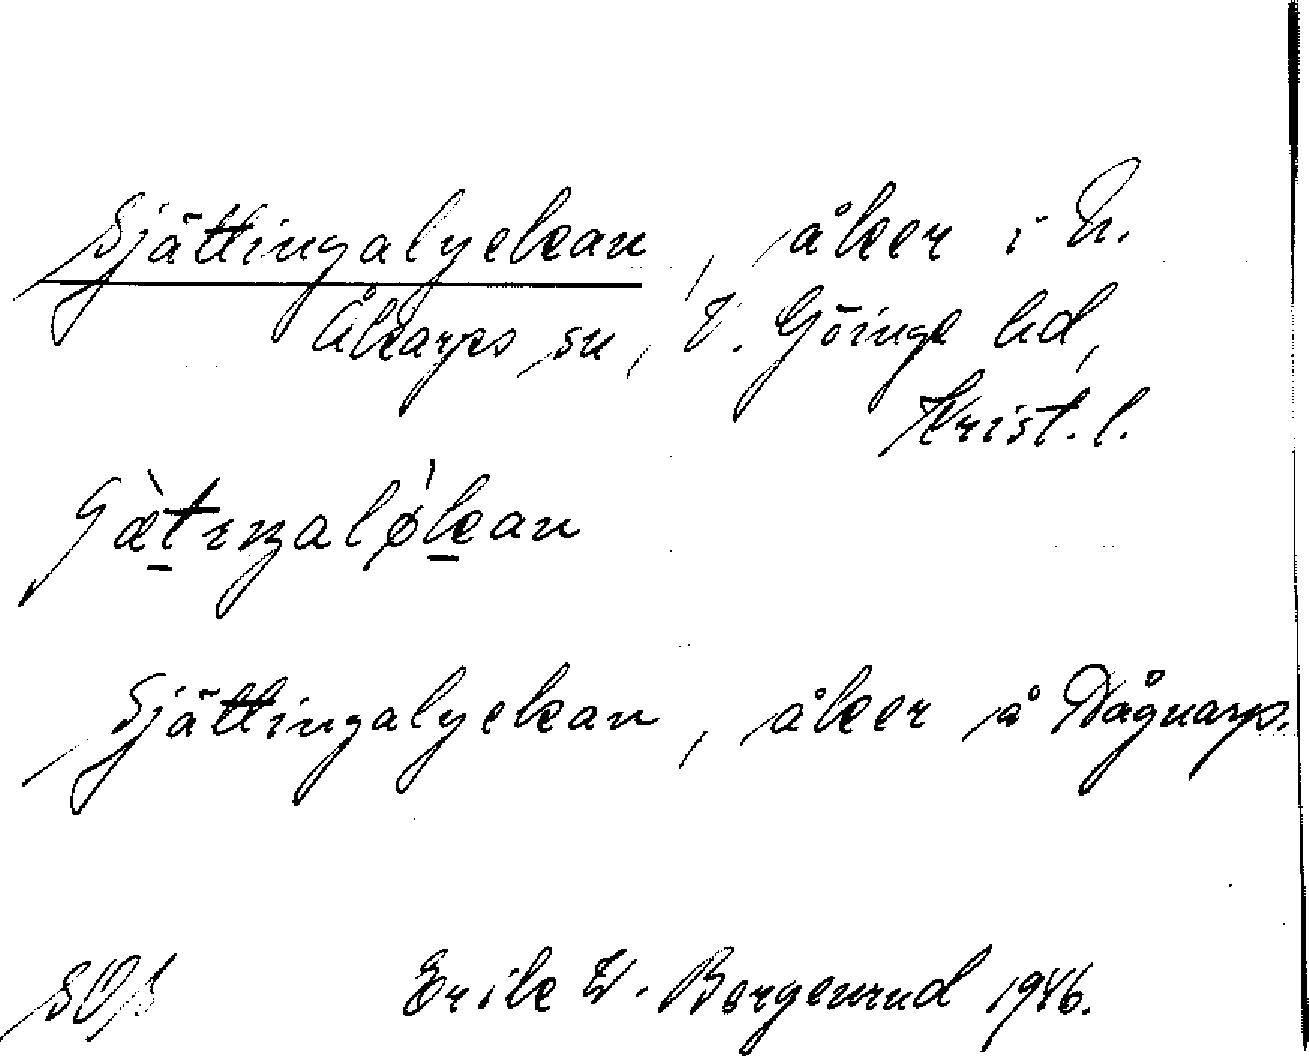 Sjättingalyckan, åker i N.
Åkarps sn, V. Göinge hd,
Krist. l.
ʃæ̀t̲ıŋalǿk̲an
Sjättingalyckan, åker å Någnarp.
Erik W. Borgenrud 1946.